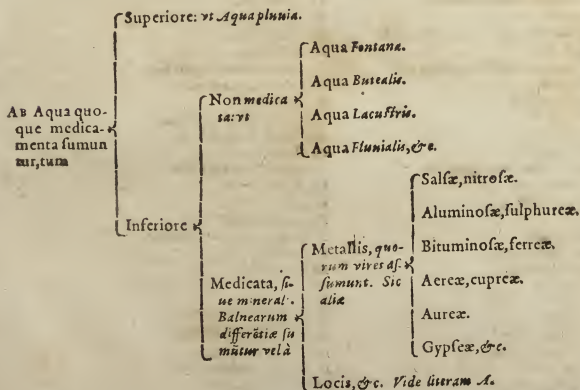 Superiore: vt Aqua pluuia.
AB Aqua quo-
que medica-
menta ſumun
tur, tum
Inferiore
Non medica
ta: vt
Aqua Fontana.
Aqua Putealis.
Aqua Lacuſtris.
Aqua Fluuialis, &c.
Medicata, ſi-
ue mineral.
Balnearum
differētiæ ſu
mūtur vel à
Metallis, quo-
rum vires aſ-
ſumunt. Sic
aliæ
Salſæ, nitroſæ.
Aluminoſæ, ſulphureæ.
Bituminoſæ, ferreæ.
Aereæ, cupreæ.
Aureæ.
Gypſeæ, &c.
Locis, &c. Vide literam A.